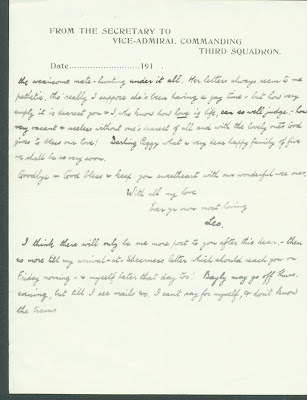 FROM THE SECRETARY TO
VICE-ADMIRAL COMMANDING
THIRD SQUADRON.
Date..........................191 .
the wearisome mate-hunting under it all. Her letters always seem to me
pathetic, tho' really I suppose she's been having a gay time - but how very
empty it is dearest you & I, who know how love is life, can so well judge, - how
very vacant & useless without one's dearest of all and with the lovely ones God
gives to bless our love! Darling Peggy what a very dear happy family of five
we shall be so very soon.
Goodbye & God bless & keep you sweetheart with our wonderful wee ones,
With all my love
Ever yr own most loving
Leo.
I think there will only be one more post to you after this dear, - then
no more till my arrival-at-Sheerness letter which should reach you on
Friday morning - & myself later that day too! Bayly may go off Thurs.
evening, but till I see mails &c. I cant say for myself, & don't know
the trains